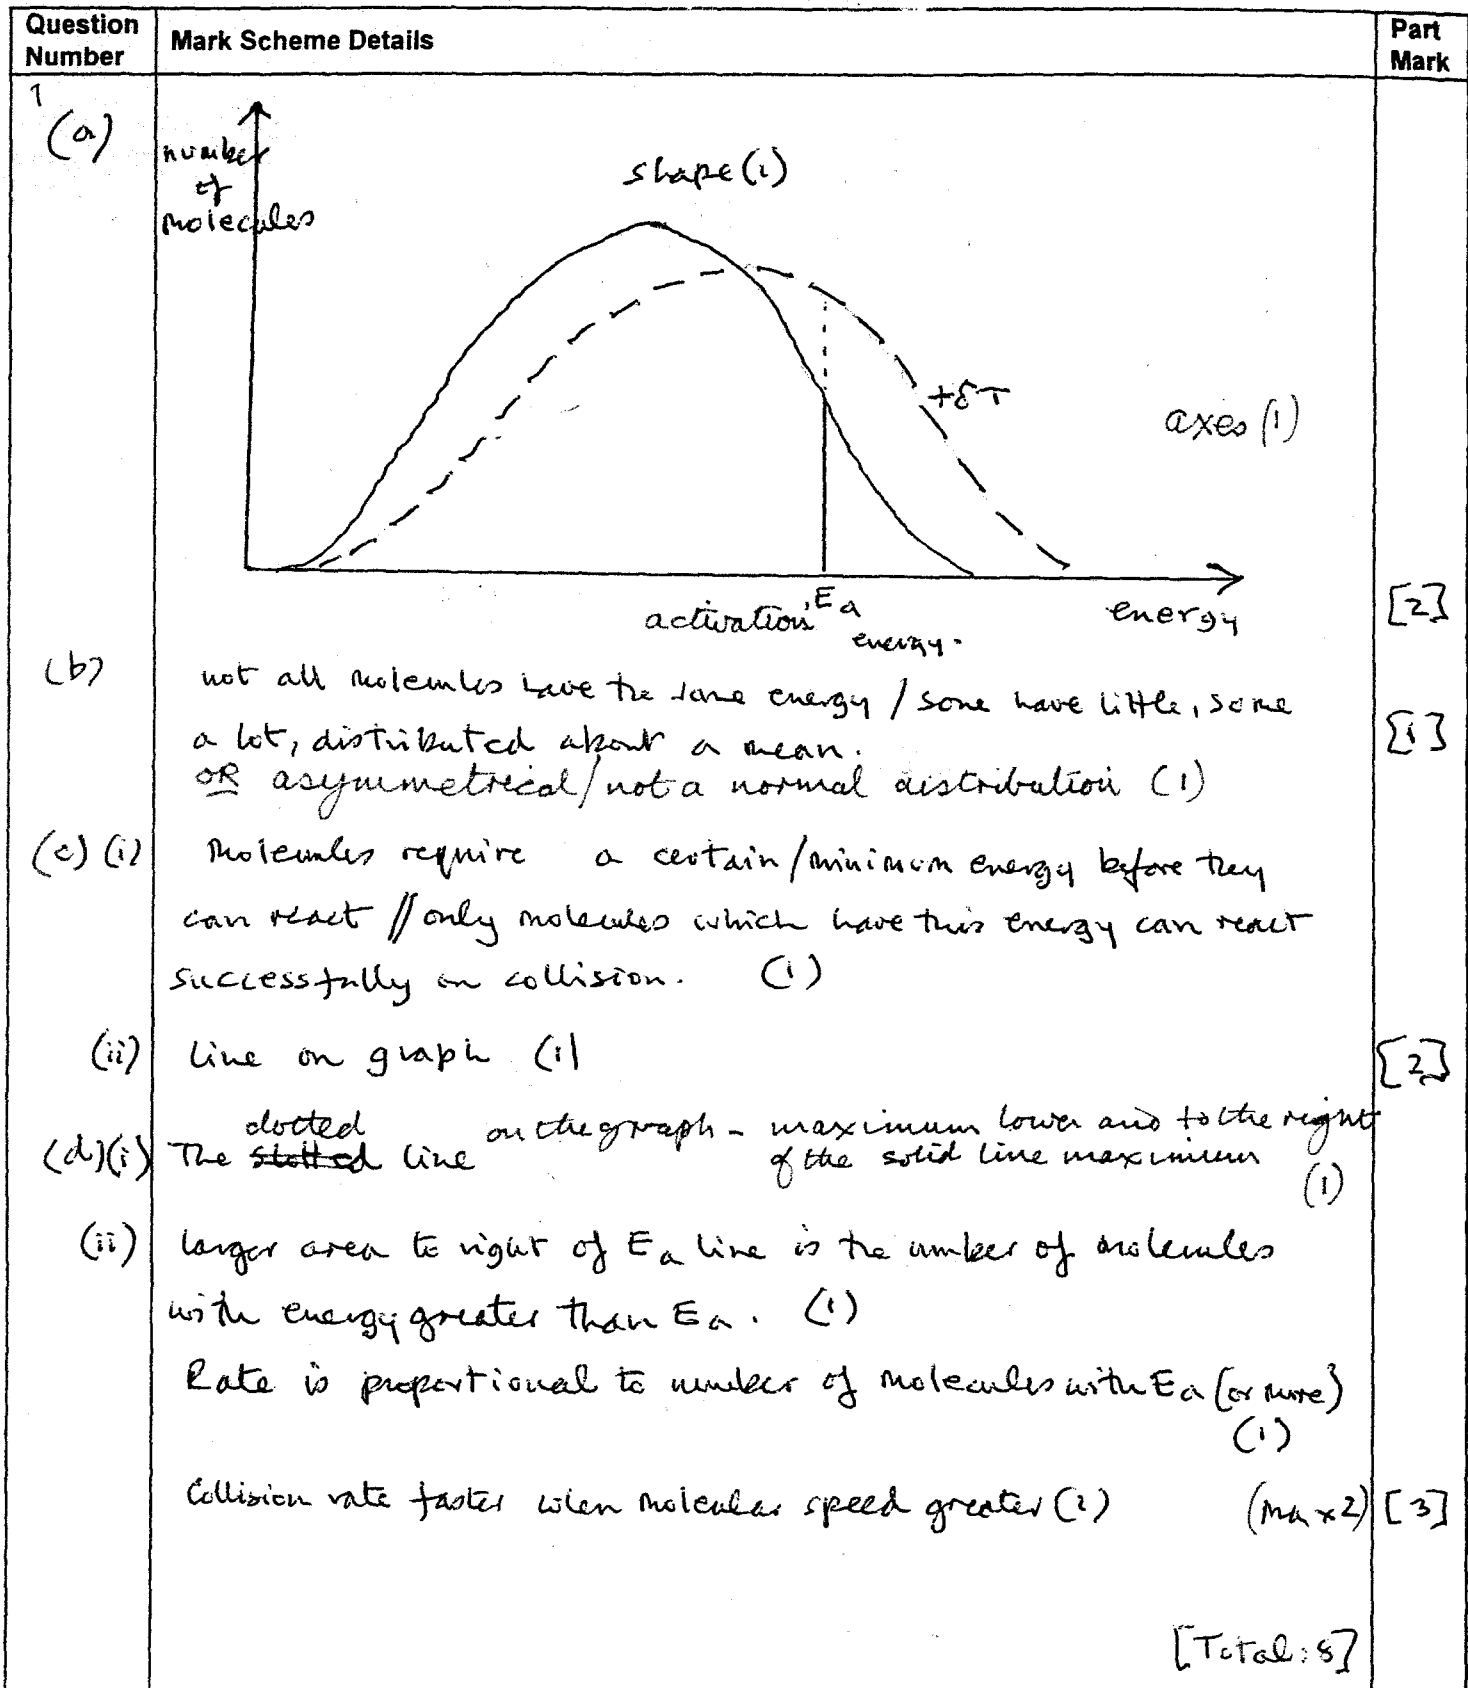 Question Number
Mark Scheme Details
Part Mark
1
(a)
number
of
molecules
shape (1)
+δT
axes (1)
activation Ea
energy.
energy
[2]
(b)
not all molecules have the same energy / some have little, some
a lot, distributed about a mean.
[1]
OR asymmetrical/not a normal distribution (1)
(c) (i)
Molecules require a certain/minimum energy before they
can react // only molecules which have this energy can react
successfully on collision. (1)
(ii) line on graph (1)
[2]
(d)(i) The dotted line on the graph - maximum lower and to the right
of the solid line maximum
(1)
(ii) larger area to right of Ea line is the number of molecules
with energy greater than Ea. (1)
Rate is proportional to number of molecules with Ea (or more)
(1)
Collision rate faster when molecular speed greater (1) (max 2) [3]
[Total: 8]